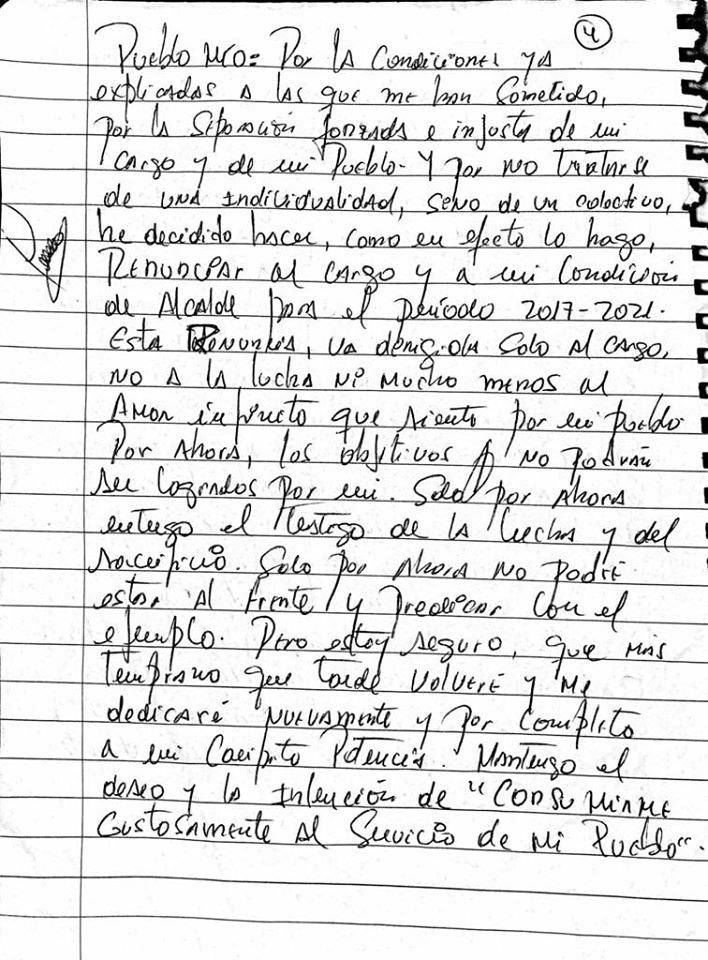 4
Pueblo mío= Por la Condiciones ya
explicadas a las que me han Sometido,
por la Separación forzada e injusta de mi
cargo y de mi Pueblo- Y por no tratarse
de una Individualidad, seno de un colectivo,
he decidido hacer, como en efecto lo hago,
Renunciar al cargo y a mi Condición
de Alcalde para el período 2017-2021.
Esta Renuncia, va dirigida Solo al cargo,
no a la lucha ni mucho menos al
Amor infinito que siento por mi pueblo
Por Ahora, los objetivos no podrán
ser Logrados por mi. Solo por Ahora
entrego el Testigo de la lucha y del
sacrificio. Solo por Ahora no podré
estar al frente y predicar con el
ejemplo. Pero estoy seguro, que más
temprano que tarde volveré y me
dedicaré nuevamente y por completo
a mi Caripito Potencia. Mantengo el
deseo y la Intención de "Consumirme
Gustosamente al Servicio de mi Pueblo".